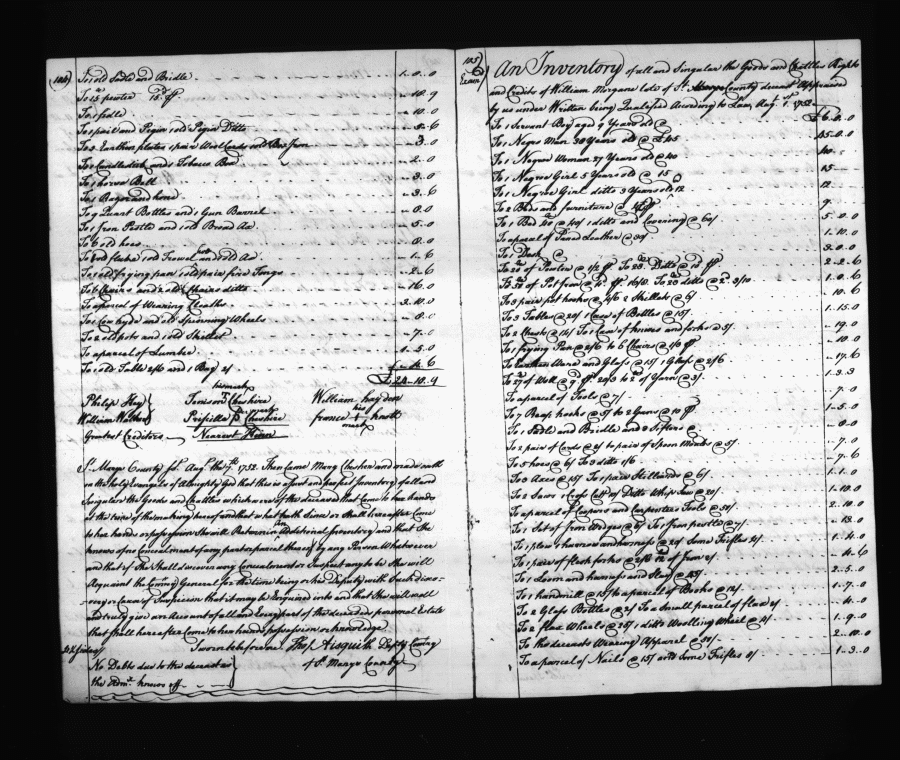 104
To 1 old Sadle and Bridle 1..0..0
To 15 lb pewter 10..9
To 1 padle 10..0
To 1 pail and Pigin 1 old Pigin Ditto 2..6
To 3 Earthen plates 1 pair Wool Cards 1 old Box Iron 3..0
To 1 Candlestick and 1 Tobacco Box 2..0
To 1 horse Bell 3..0
To 1 Razor and hone 3..6
To 9 Quart Bottles and 1 Gun Barrel 0..0
To 1 Iron Pestle and 1 old Broad Ax 5..0
To 6 old hoes 0..0
To 1 old 1 old Trowel and 1 old Ax 1..6
To 1 old frying pan 1 old pair fire Tongs 2..6
To 6 Chairs and 2 old Chairs ditto 16..0
To a parcel of Wearing Cloaths 3..10..0
To 1 Cow hyde and old Spinning Wheels 0..0
To 2 old pots and 1 old Skillet 7..0
To a parcel of Lumber 1..5..0
To 1 old Table 2/6 and 1 Bag 2/
£24..18..9
Philip Key
William Walker
Greatest Creditors
his mark
Tenison Cheshire
Prisilla Cheshire
mark
Nearest Kinn
William haydon
his
francis knott
mark
St. Marys County Js. Augt. the 7th. 1752. Then Came Mary Cheshire and made oath
on the holy Evangels of Almighty God that this is a Just and perfect Inventory of all and
Singular the Goods and Chattles which were of the deceased that Come to her hands
at the time of the making hereof and that what hath Since or Shall hereafter Come
to her hands or possession She will Return in an Additional Inventory and that She
knows of no Concealment of any part or parcel thereof by any Person Whatsoever
and that if She Shall discover any Concealment or Suspect any to be She will
Acquaint the Comry General for the time being or his Deputy with Such disco-
very or Cause of Suspicion that it may be Enquired into and that She will well
and truly give an Account of all and Every part of the deceased's personal Estate
that shall hereafter Come to her hands possession or knowledge
Sworn before Thos. Aisquith Depty Comry
of St. Marys County
No Debts due to the deceased
the Admx. knows off
105
Exam'd
An Inventory of all and Singular the Goods and Chattles Rights
and Credits of William Morgan late of St. Marys County deceased Appraised
by us under Written being Qualified According to Law, Augt. 1st. 1752
To 1 Servant Boy aged 9 Years old @ £6..0..0
To 1 Negro Man 30 Years old @ £45 45..0..0
To 1 Negroe Woman 27 Years old @ 40 40
To 1 Negroe Girl 5 Years old @ 15 15
To 1 Negroe Girl ditto 3 Years old 12 12
To 2 Beds and furniture @
To 1 Bed @ 40/ 1 ditto and Covering @ 60/ 5..0..0
To a parcel of Tan'd Leather @ 30/ 1..10..0
To 1 Desk @ 3..0..0
To 20 lb of Pewter @ 1/2 Ditto 2..2..6
To of Pot Iron @ 1..0..6
To 3 pair pot hooks @ 2 Skillets @ 6/ 10..6
To 3 Tables @ 20/ 1 Case of Bottles @ 15/ 1..15..0
To 2 Chests @ 14/ To 1 Case of knives and forks @ 5/ 19..0
To 1 frying Pan @ 2/6 to 6 Chairs @ 10..0
To Earthen Ware and Glass @ 15/ 1 Glass @ 2/6 17..6
To 27 lb of Wool @ 9d 20/3 to 2 lb of Yarn @ 3/ 1..3..3
To a parcel of Tools @ 7/ 7..0
To 7 Reap hooks @ 5/ to 2 Guns @ 1..5..0
To 1 Sadle and Bridle and Sifters @ 0..0
To 2 pair of Cards @ 2/ to pair of Spoon Moulds @ 5/ 7..0
To 5 hoes @ 6/ To 3 ditto 1/6 7..6
To 3 Axes @ 15/ To 1 pair Stillards @ 6/ 1..1..0
To 2 Saws 1 Cross Cut Ditto Whip Saw @ 20/ 1..10..0
To a parcel of Coopers and Carpenters Tools @ 50/ 2..10..0
To 1 Set of Iron Wedges @ 6/ To 1 Iron pestle @ 7/ 13..0
To 1 plow 1 harrow and harness @ 20/ Some Trifles 4/ 1..4..0
To 1 pair of flesh forks @ 2/6 of Iron 2/ 4..6
To 1 Loom and harness and Slay @ 45/ 2..5..0
To 1 handmill @ 15/ to a parcel of Books @ 12/ 1..7..0
To 2 Glass Bottles @ 2/ To a Small parcel of flax 2/ 4..0
To 2 flax Wheels @ 25/ 1 ditto Woolling Wheel @ 4/ 1..9..0
To the deceaseds Wearing Apparel @ 50/ 2..10..0
To a parcel of Nails @ 15/ and Some Trifles 8/ 1..3..0